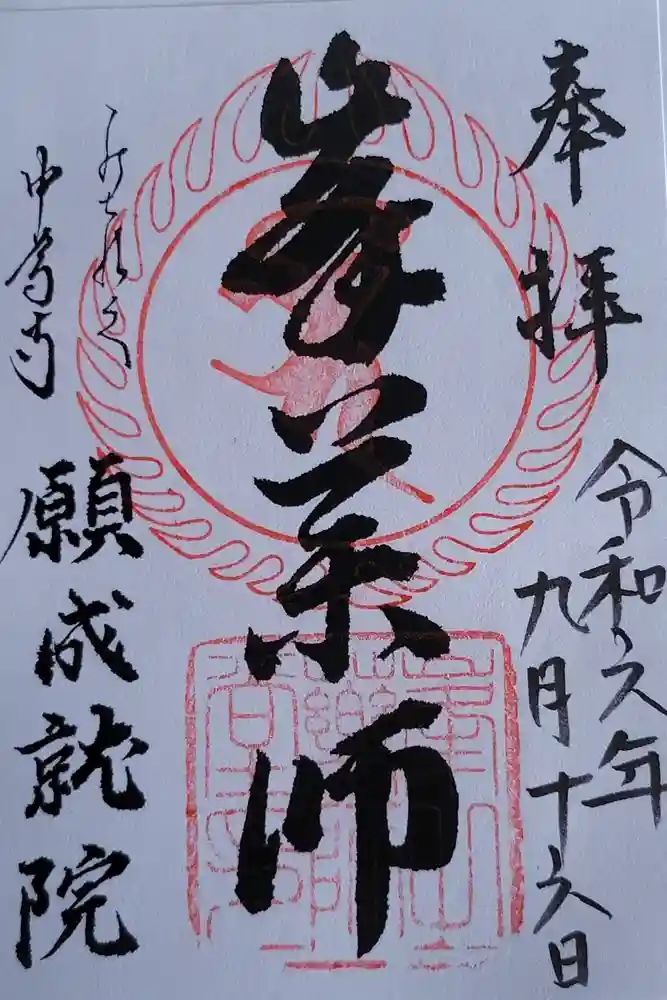 奉拝
令和六年
九月十六日
峯薬師
みちのく
中尊寺
願成就院